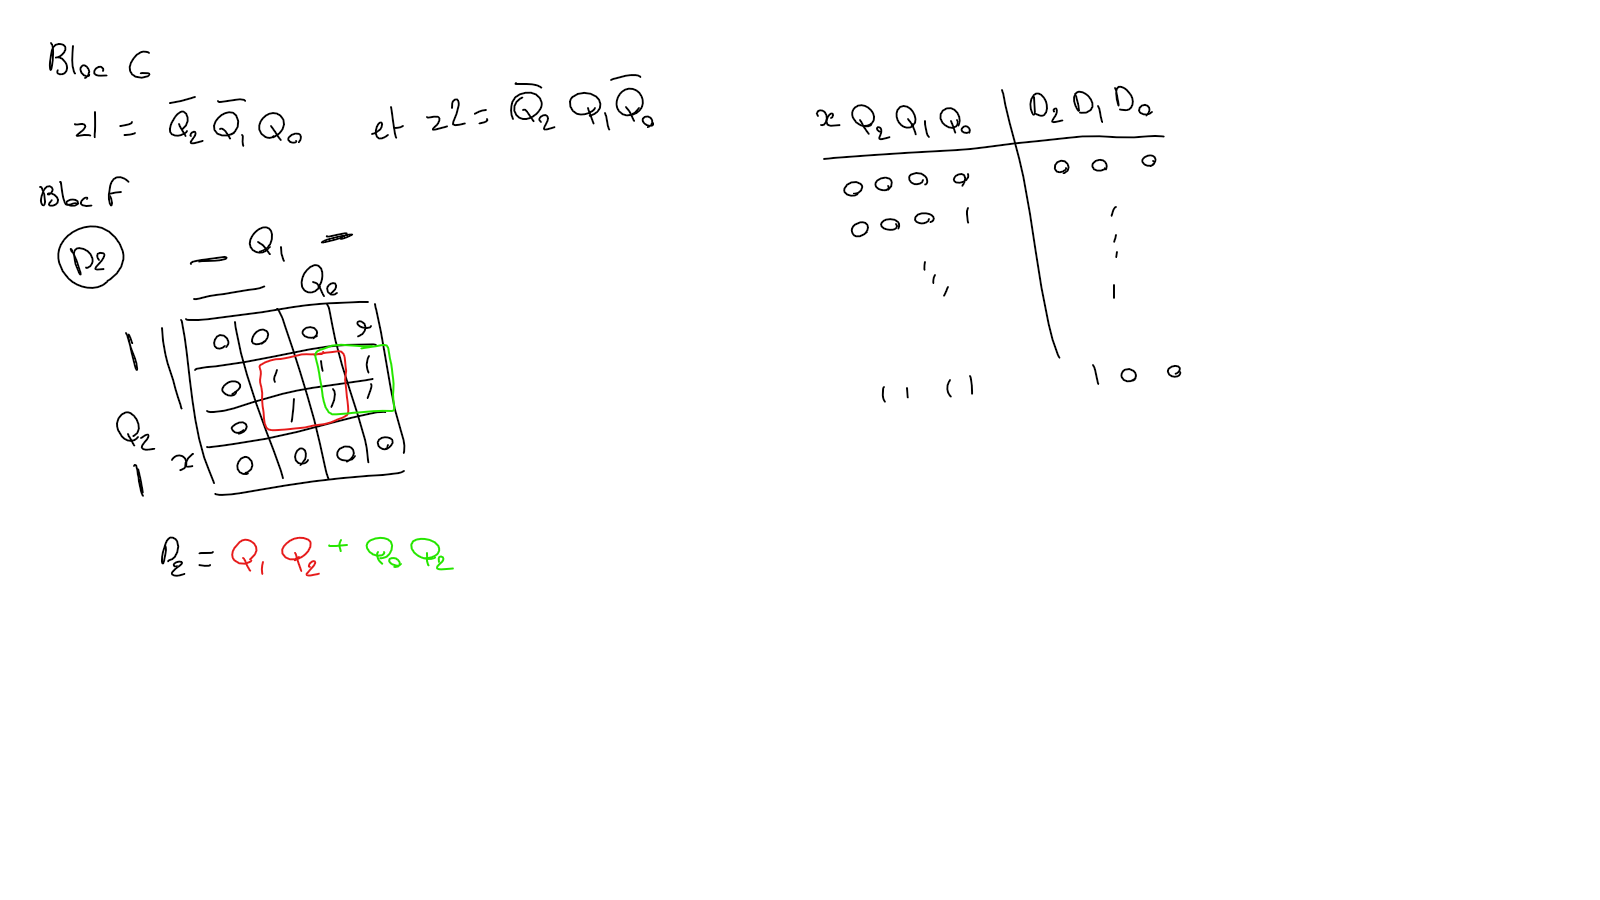 Bloc G
z1 = Q̅₂ Q̅₁ Q₀ et z2 = Q̅₂ Q₁ Q̅₀
Bloc F
D2
Q₁
Q₀
0 0 0
0 1 1 1
0 1 1 1
0 0 0 0
Q₂
x
D₂ = Q₁ Q₂ + Q₀ Q₂
x Q₂ Q₁ Q₀ D₂ D₁ D₀
0 0 0 0 0 0 0
0 0 0 1
1 1 1 1 1 0 0